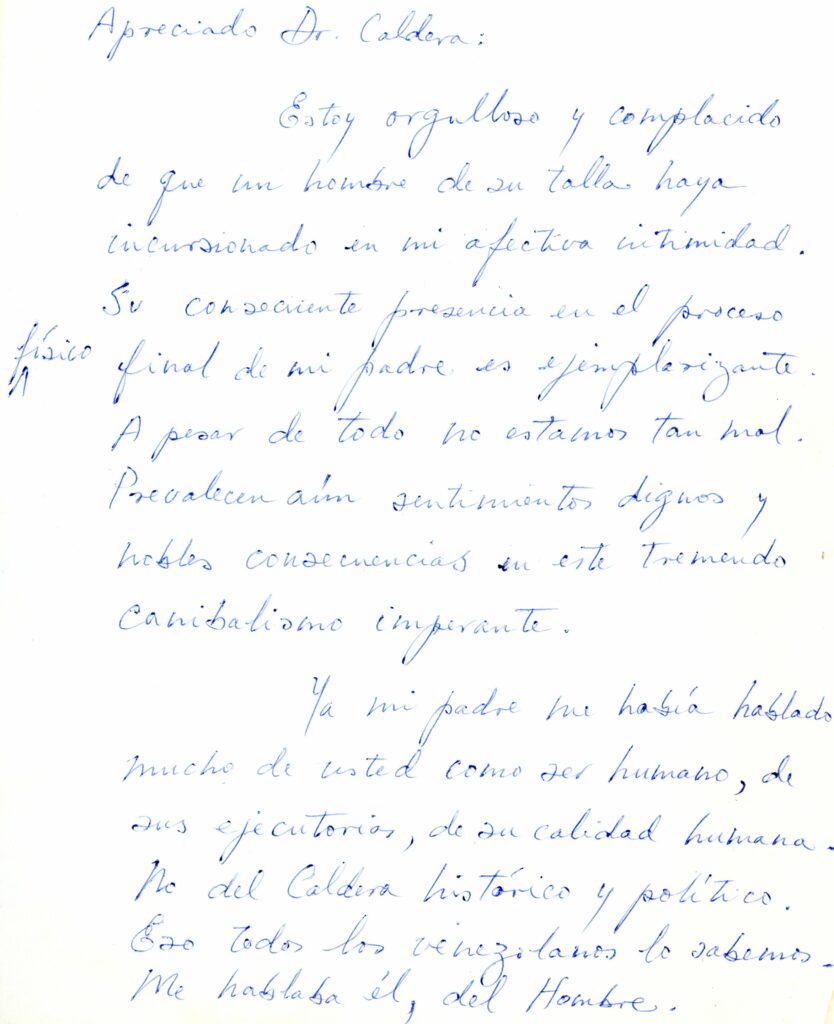 Apreciado Dr. Caldera:
Estoy orgulloso y complacido
de que un hombre de su talla haya
incursionado en mi afectiva intimidad.
Su consecuente presencia en el proceso
físico final de mi padre es ejemplarizante.
A pesar de todo no estamos tan mal.
Prevalecen aún sentimientos dignos y
nobles consecuencias en este tremendo
canibalismo imperante.
Ya mi padre me había hablado
mucho de usted como ser humano, de
sus ejecutorias, de su calidad humana.
No del Caldera histórico y político.
Eso todos los venezolanos lo sabemos.
Me hablaba él, del Hombre.